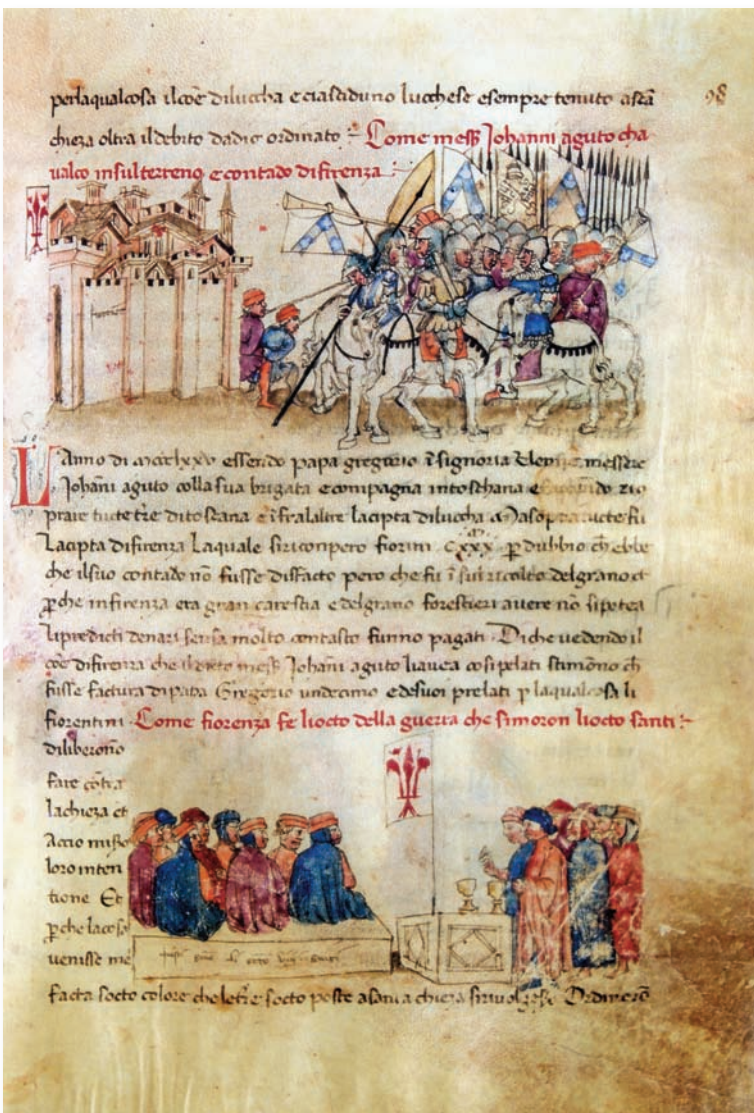 perlaqualcosa ilcoē diluccha e ciaschduno lucchese esempre tenuto asēa
98
chieza oltra ildebito dadio ordinato Come mess Johanni aguto cha
ualco insulterreno e contado difirenza
LAnno di mccclxxv essendo papa gregorio ī signoria messere
Johāni aguto collasua brigata ecompagna intoschana e
prare tucte t're ditoscana e īfralaltre lacipta diluccha Masopra tucte fu
Lacipta difirenza Laquale siricompero fiorini cxxx p dubbio ch ebbe
che ilsuo contado nō fusse disfacto pero che fu ī sul ricolto delgrano et
pche infirenza era gran carestia e delgrano forestieri auere nō sipotea
lipredicti denari sensa molto contasto funno pagati Diche uedendo il
coē difirenza che ildicto mess Johāni aguto liauea cosi pelati stimōno ch
fusse factura dipapa Gregorio undecimo e desuoi prelati p laqualcosa li
fiorentini Come fiorenza fe liocto della guerra che simoron liocto santi
diliberonō
fare cōtra
lachieza et
Accio
loro inten
tione Et
pche lacosa
uenisse me
facta socto colore che let're socto poste asanta chieza Ordinorō